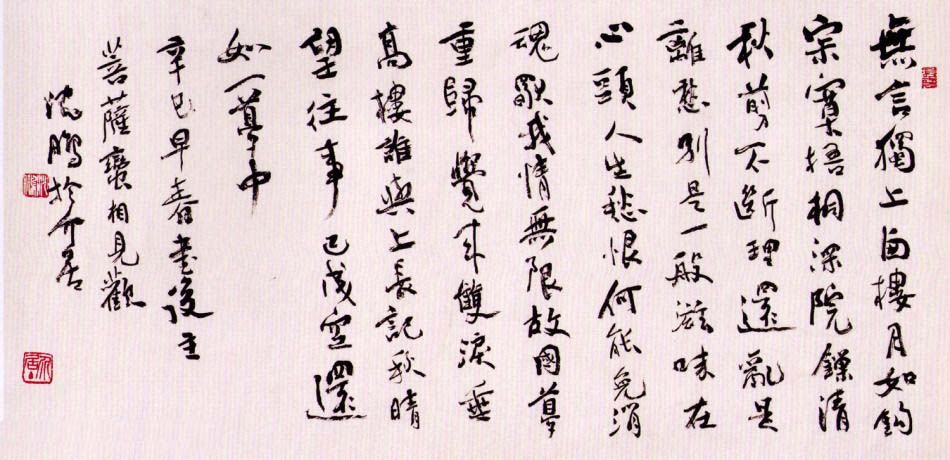 無言獨上西樓月如鈎
寂寞梧桐深院鎖清
秋剪不斷理還亂是
離愁別是一般滋味在
心頭人生愁恨何能免消
魂獨我情無限故國夢
重歸覺來雙淚垂
高樓誰與上長記秋晴
望往事已成空還
如一夢中
辛巳早春書後主
菩薩蠻相見觀
沈鵬於介居